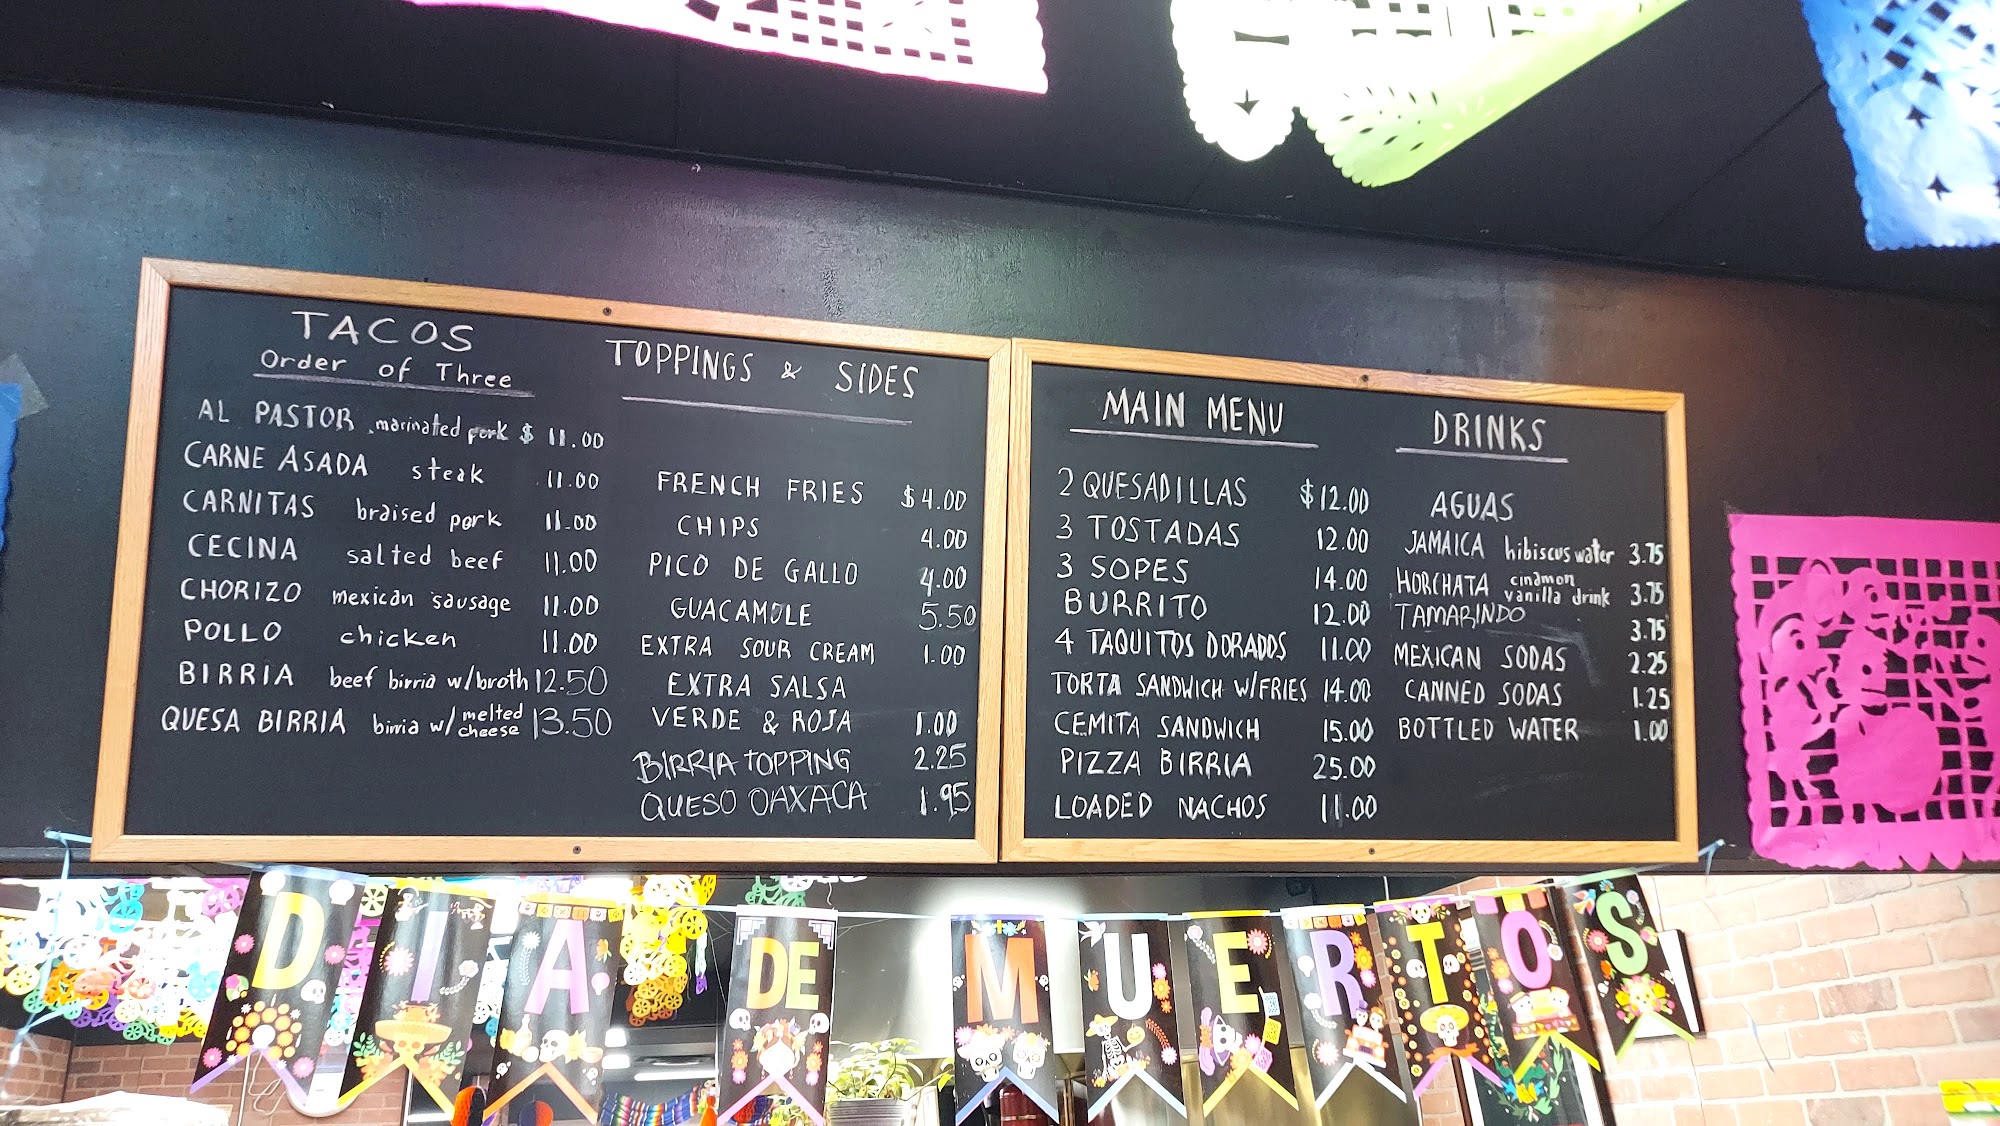 TACOS
Order of Three
AL PASTOR marinated pork $ 11.00
CARNE ASADA steak 11.00
CARNITAS braised pork 11.00
CECINA salted beef 11.00
CHORIZO mexican sausage 11.00
POLLO chicken 11.00
BIRRIA beef birria w/broth 12.50
QUESA BIRRIA birria w/ melted cheese 13.50
TOPPINGS & SIDES
FRENCH FRIES $4.00
CHIPS 4.00
PICO DE GALLO 4.00
GUACAMOLE 5.50
EXTRA SOUR CREAM 1.00
EXTRA SALSA
VERDE & ROJA 1.00
BIRRIA TOPPING 2.25
QUESO OAXACA 1.95
MAIN MENU
2 QUESADILLAS $12.00
3 TOSTADAS 12.00
3 SOPES 14.00
BURRITO 12.00
4 TAQUITOS DORADOS 11.00
TORTA SANDWICH W/FRIES 14.00
CEMITA SANDWICH 15.00
PIZZA BIRRIA 25.00
LOADED NACHOS 11.00
DRINKS
AGUAS
JAMAICA hibiscus water 3.75
HORCHATA cinamon vanilla drink 3.75
TAMARINDO 3.75
MEXICAN SODAS 2.25
CANNED SODAS 1.25
BOTTLED WATER 1.00
DIA DE MUERTOS